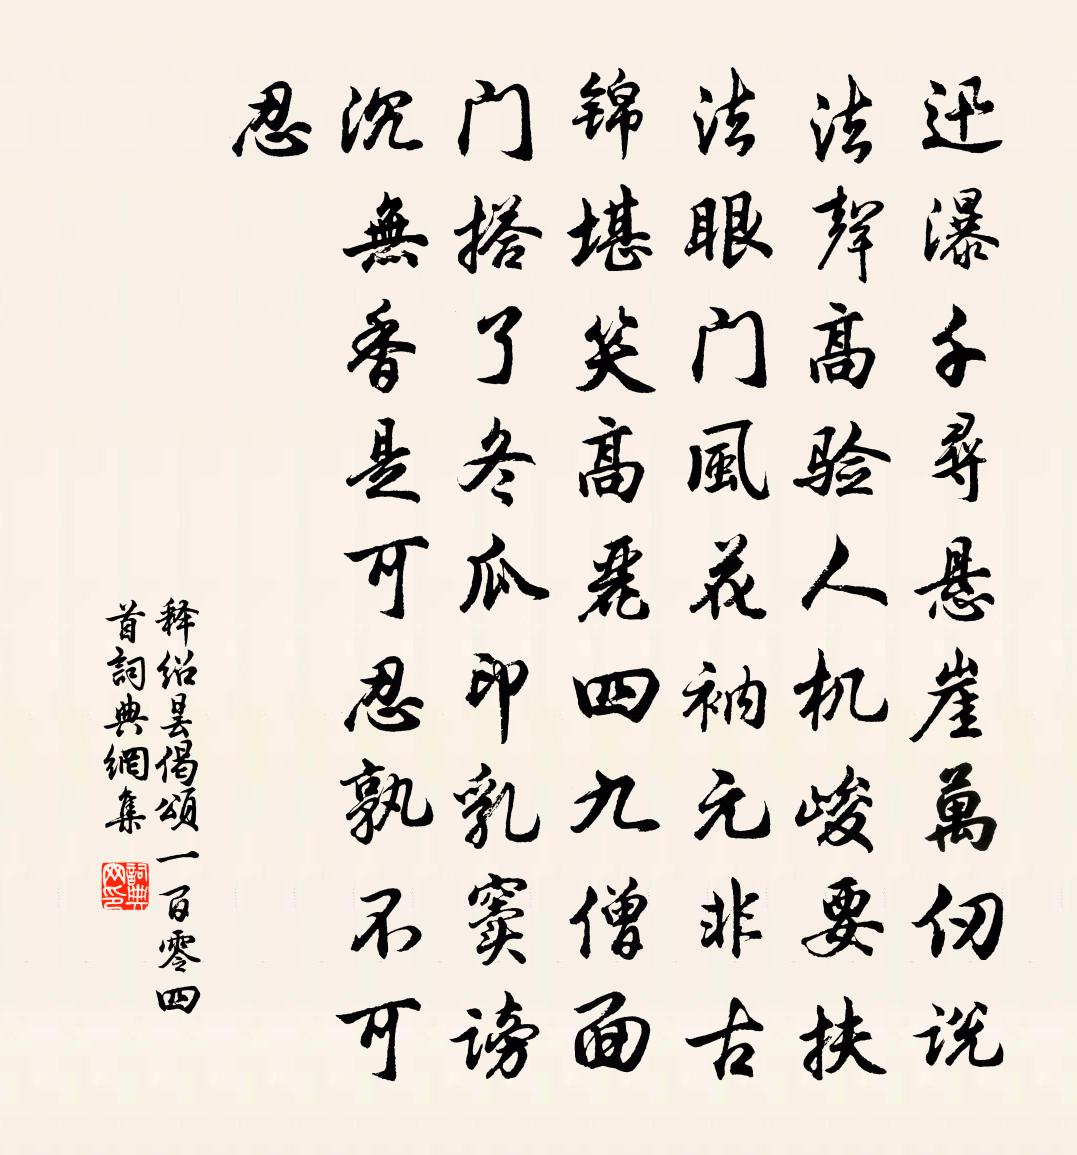 迅瀑千尋悬崖萬仞说
法聲高验人机峻要扶
法眼门風花衲元非古
锦堪笑高麗四九僧面
门搭了冬瓜印乳窦谤
沉無香是可忍孰不可
忍
释绍昙偈頌一百零四
首詞典網集
詞典